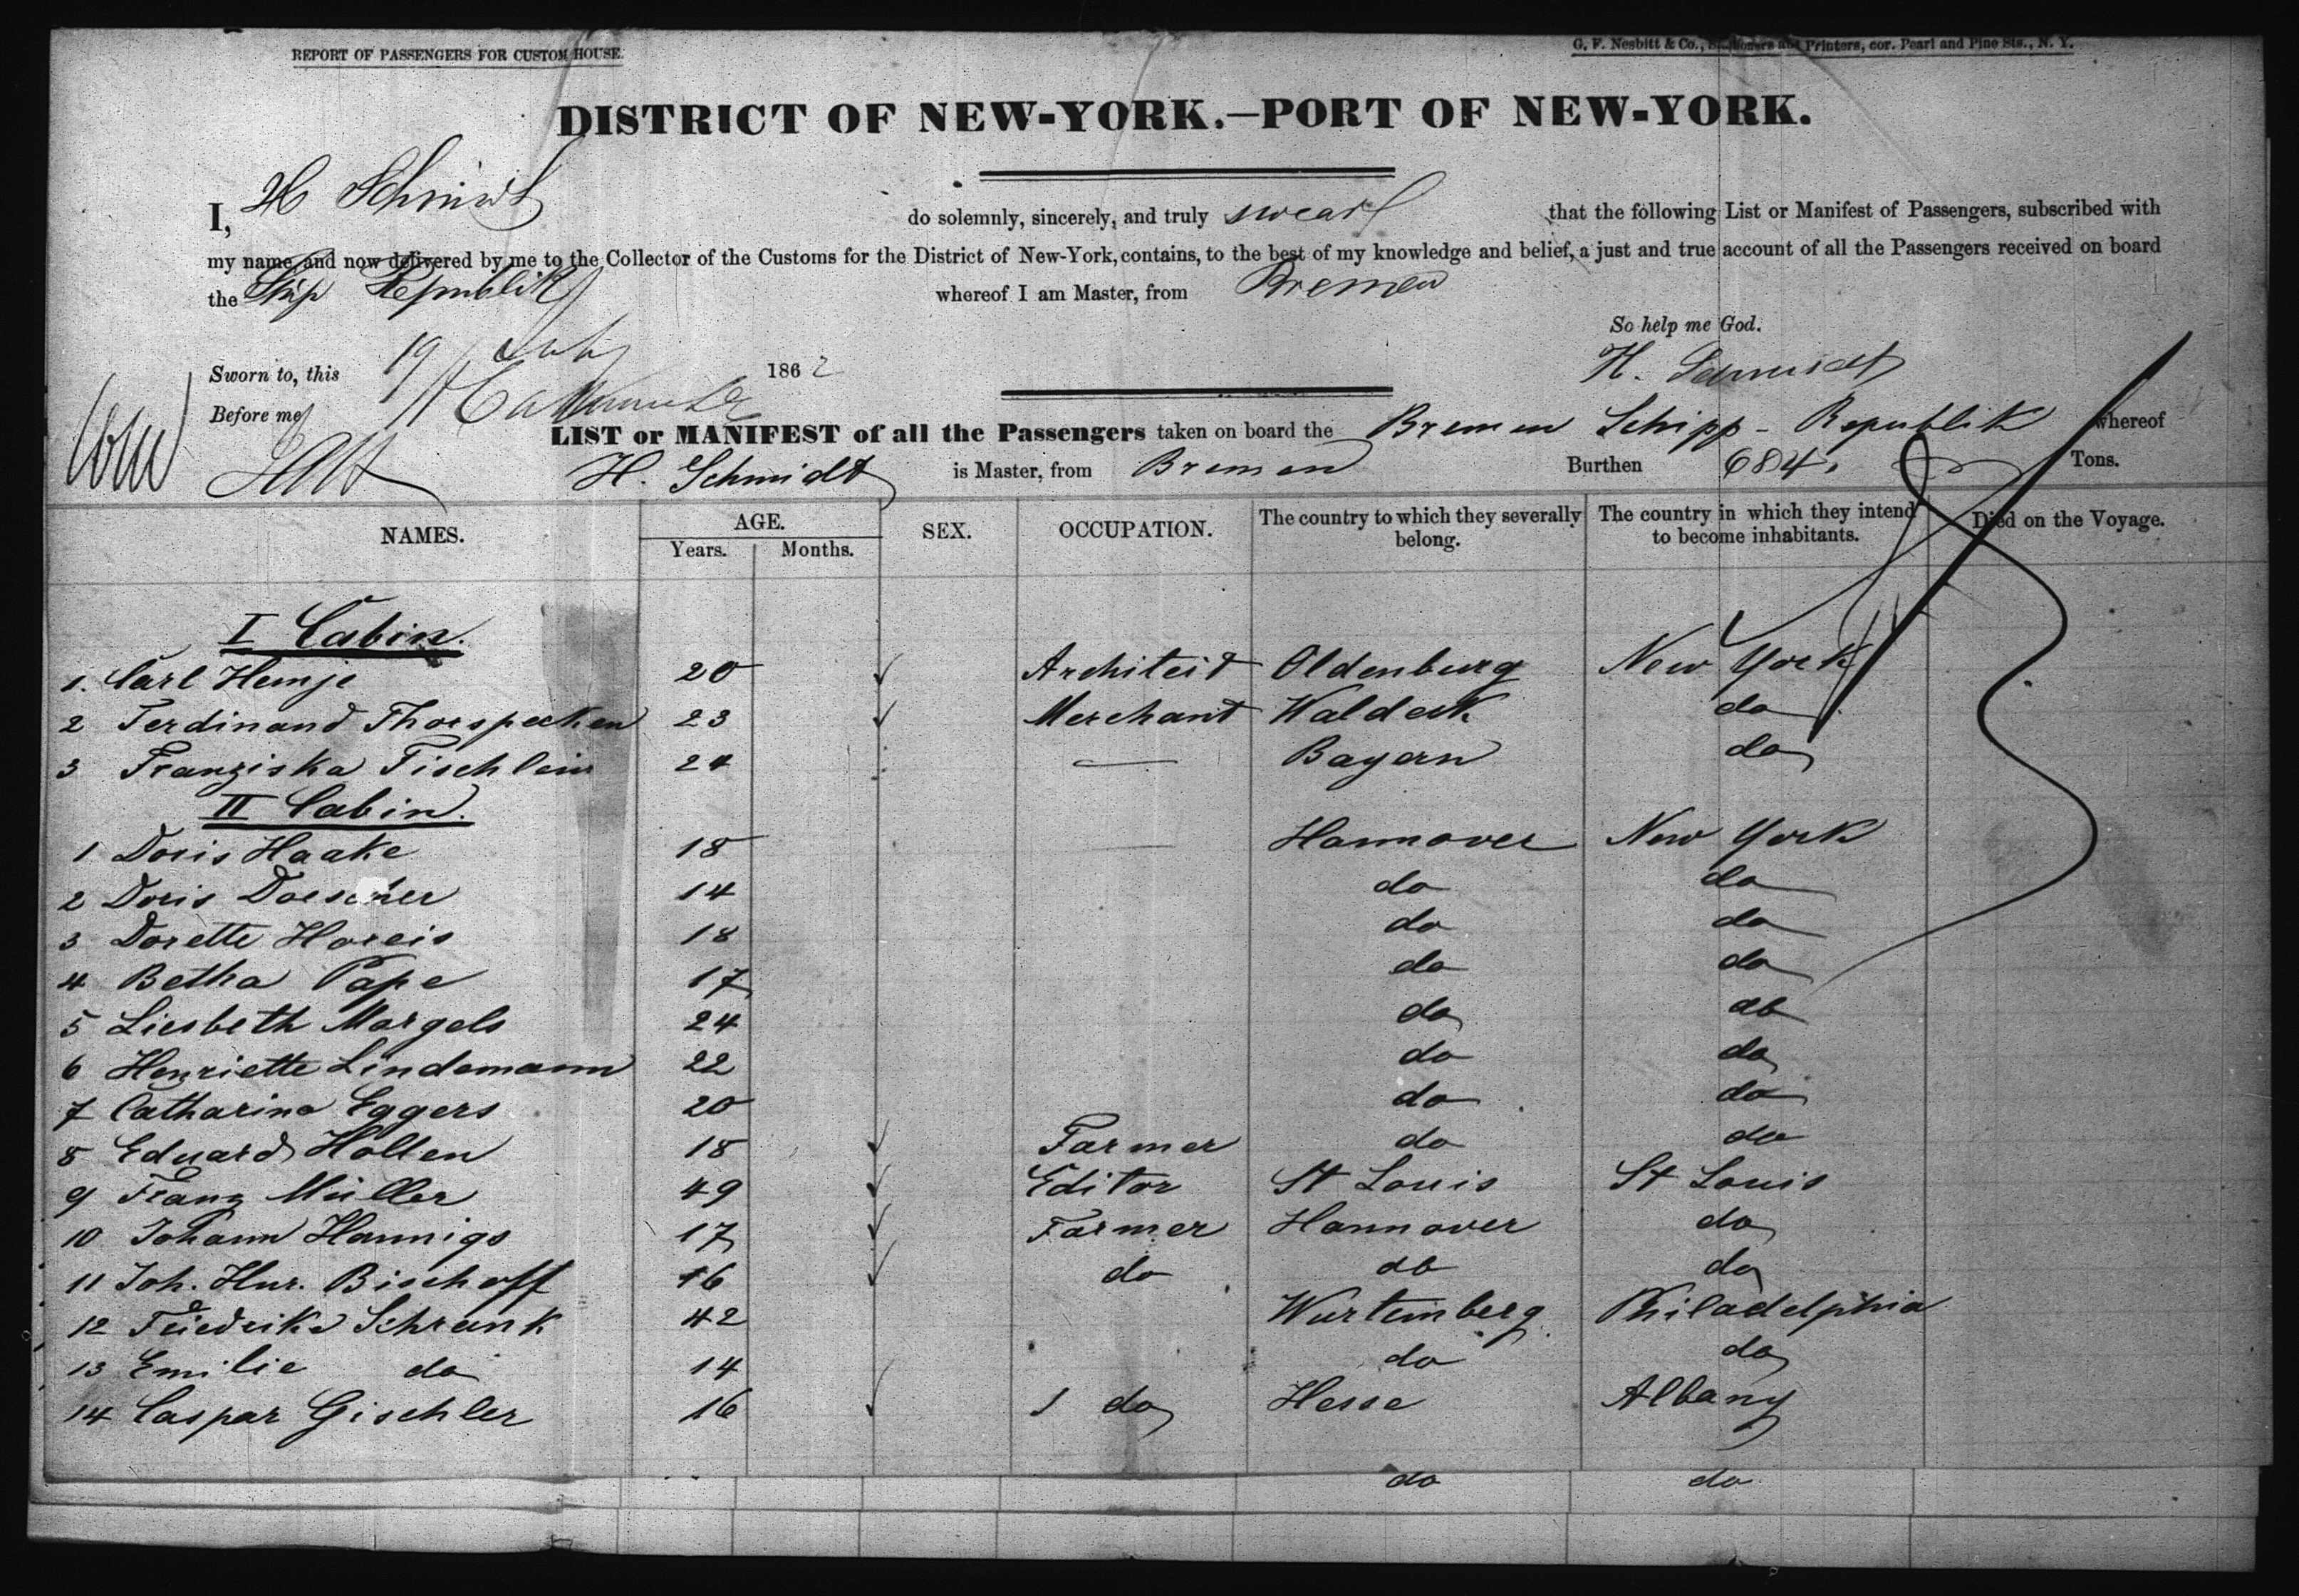 REPORT OF PASSENGERS FOR CUSTOM HOUSE.
G. F. Nesbitt & Co., Stationers and Printers, cor. Pearl and Pine Sts., N. Y.
DISTRICT OF NEW-YORK.—PORT OF NEW-YORK.
I, H Schmidt do solemnly, sincerely, and truly swear that the following List or Manifest of Passengers, subscribed with
my name, and now delivered by me to the Collector of the Customs for the District of New-York, contains, to the best of my knowledge and belief, a just and true account of all the Passengers received on board
the Ship Republik whereof I am Master, from Bremen
So help me God.
Sworn to, this 19 July 1862
H. Schmidt
Before me
LIST or MANIFEST of all the Passengers taken on board the Bremen Schipp - Republik whereof
H. Schmidt is Master, from Bremen Burthen 684. Tons.
NAMES. AGE. SEX. OCCUPATION. The country to which they severally belong. The country in which they intend to become inhabitants. Died on the Voyage.
Years. Months.
I Cabin.
1. Carl Hemje 20 Architect Oldenburg New York
2 Ferdinand Thorspecken 23 Merchant Waldeck do
3 Franziska Fischlein 24 — Bayern do
II Cabin.
1 Doris Haake 18 — Hannover New York
2 Doris Doescher 14 do do
3 Dorette Horeis 18 do do
4 Betha Pape 17 do do
5 Liesbeth Margels 24 do do
6 Henriette Lindemann 22 do do
7 Catharine Eggers 20 do do
8 Eduard Holten 18 Farmer do do
9 Franz Müller 49 Editor St Louis St Louis
10 Johann Hannigs 17 Farmer Hannover do
11 Joh. Hnr. Bischoff 16 do do do
12 Friedrike Schrenk 42 Wurtemberg Philadelphia
13 Emilie do 14 do do
14 Caspar Gischler 16 do Hesse Albany
do do